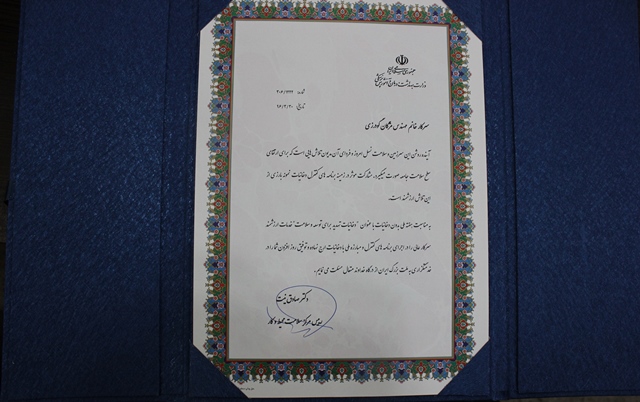 جمهوری اسلامی ایران
وزارت بهداشت، درمان و آموزش پزشکی
شماره: ۳۰۶/۶۶۶
تاریخ: ۹۶/۳/۲۰
سرکار خانم مهندس مژگان گودرزی
آینده روشن این سرزمین و سلامت نسل امروز و فردای آن مدیون تلاش هایی است که برای ارتقای
سطح سلامت جامعه صورت میگیرد. مشارکت موثر در زمینه برنامه های کنترل دخانیات نمونه بارزی از
این تلاش ارزشمند است.
به مناسبت هفته ملی بدون دخانیات با عنوان "دخانیات تهدید برای توسعه و سلامت" خدمات ارزشمند
سرکار عالی را در اجرای برنامه های کنترل و مبارزه ملی با دخانیات ارج نهاده و توفیق روز افزون شما را در
خدمتگزاری به ملت بزرگ ایران از درگاه خداوند متعال مسئلت می نمایم.
دکتر صادق نیت
رییس مرکز سلامت محیط و کار